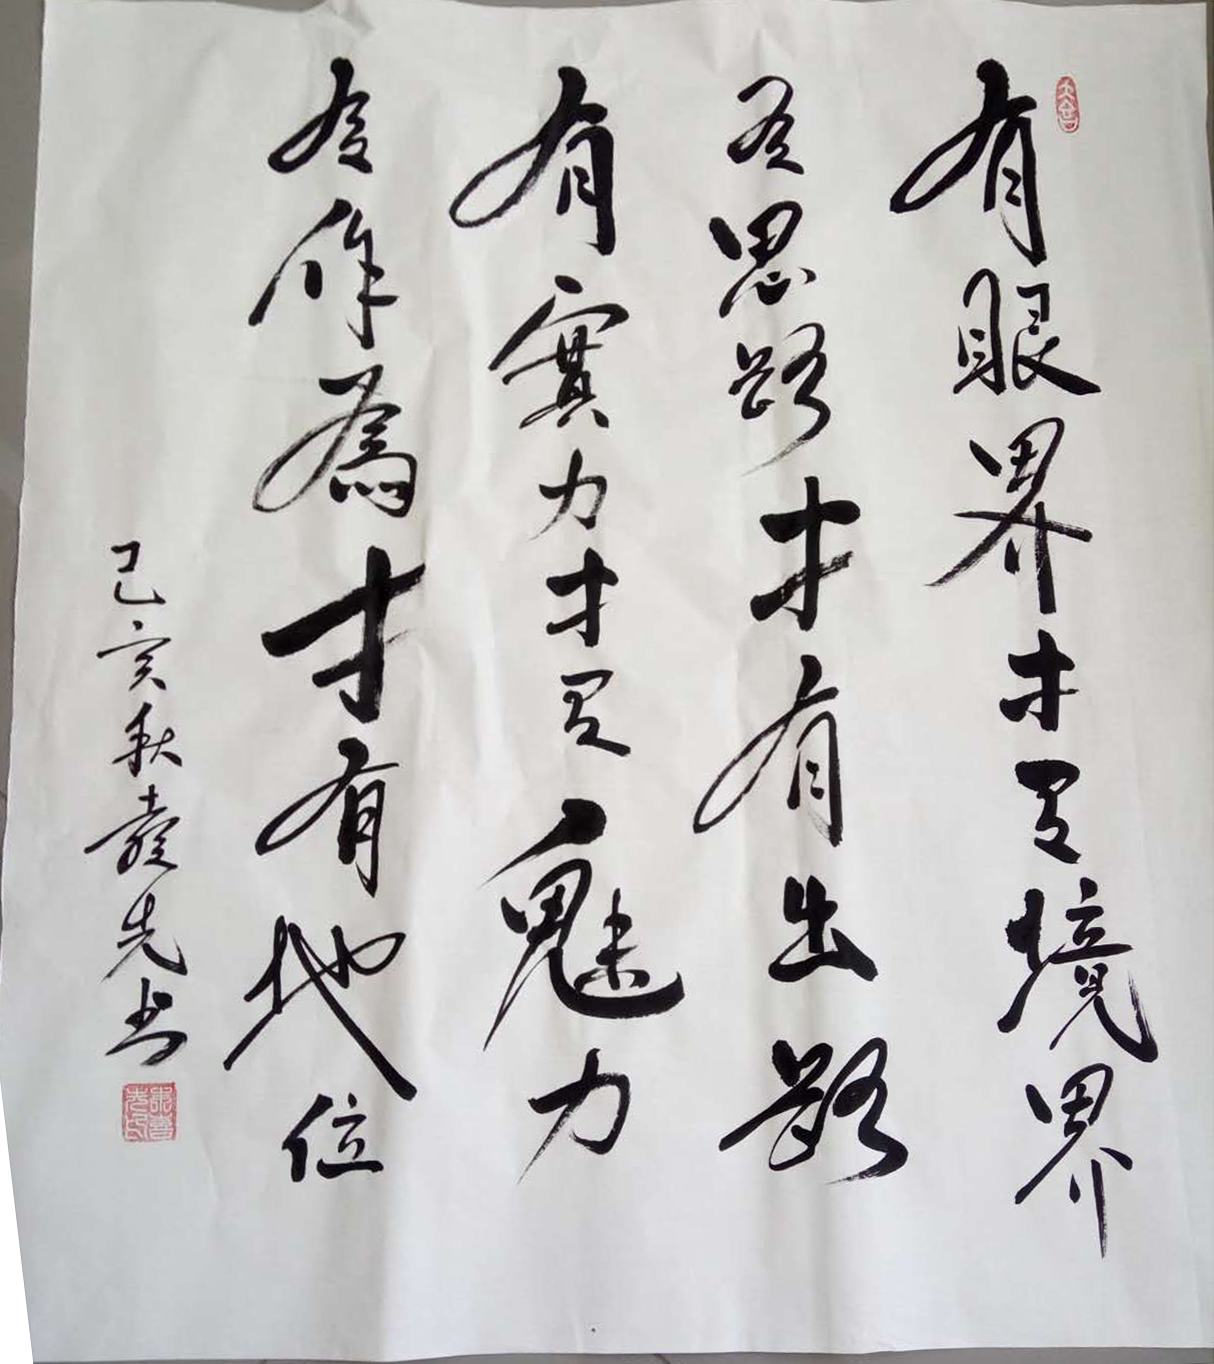 有眼界才有境界
有思路才有出路
有實力才有魅力
有作為才有地位
己亥秋
先书